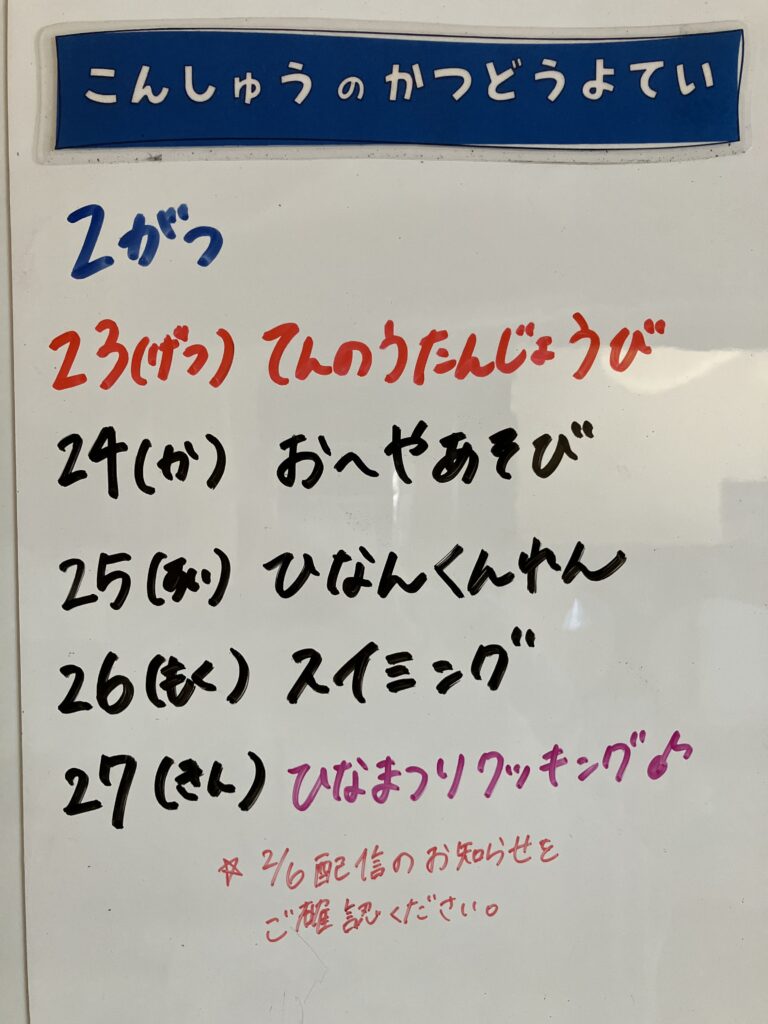 こんしゅうのかつどうよてい
2がつ
23(げつ) てんのうたんじょうび
24(か) おへやあそび
25(すい) ひなんくんれん
26(もく) スイミング
27(きん) ひなまつりクッキング♪
☆ 2/6配信のお知らせを
ご確認ください。